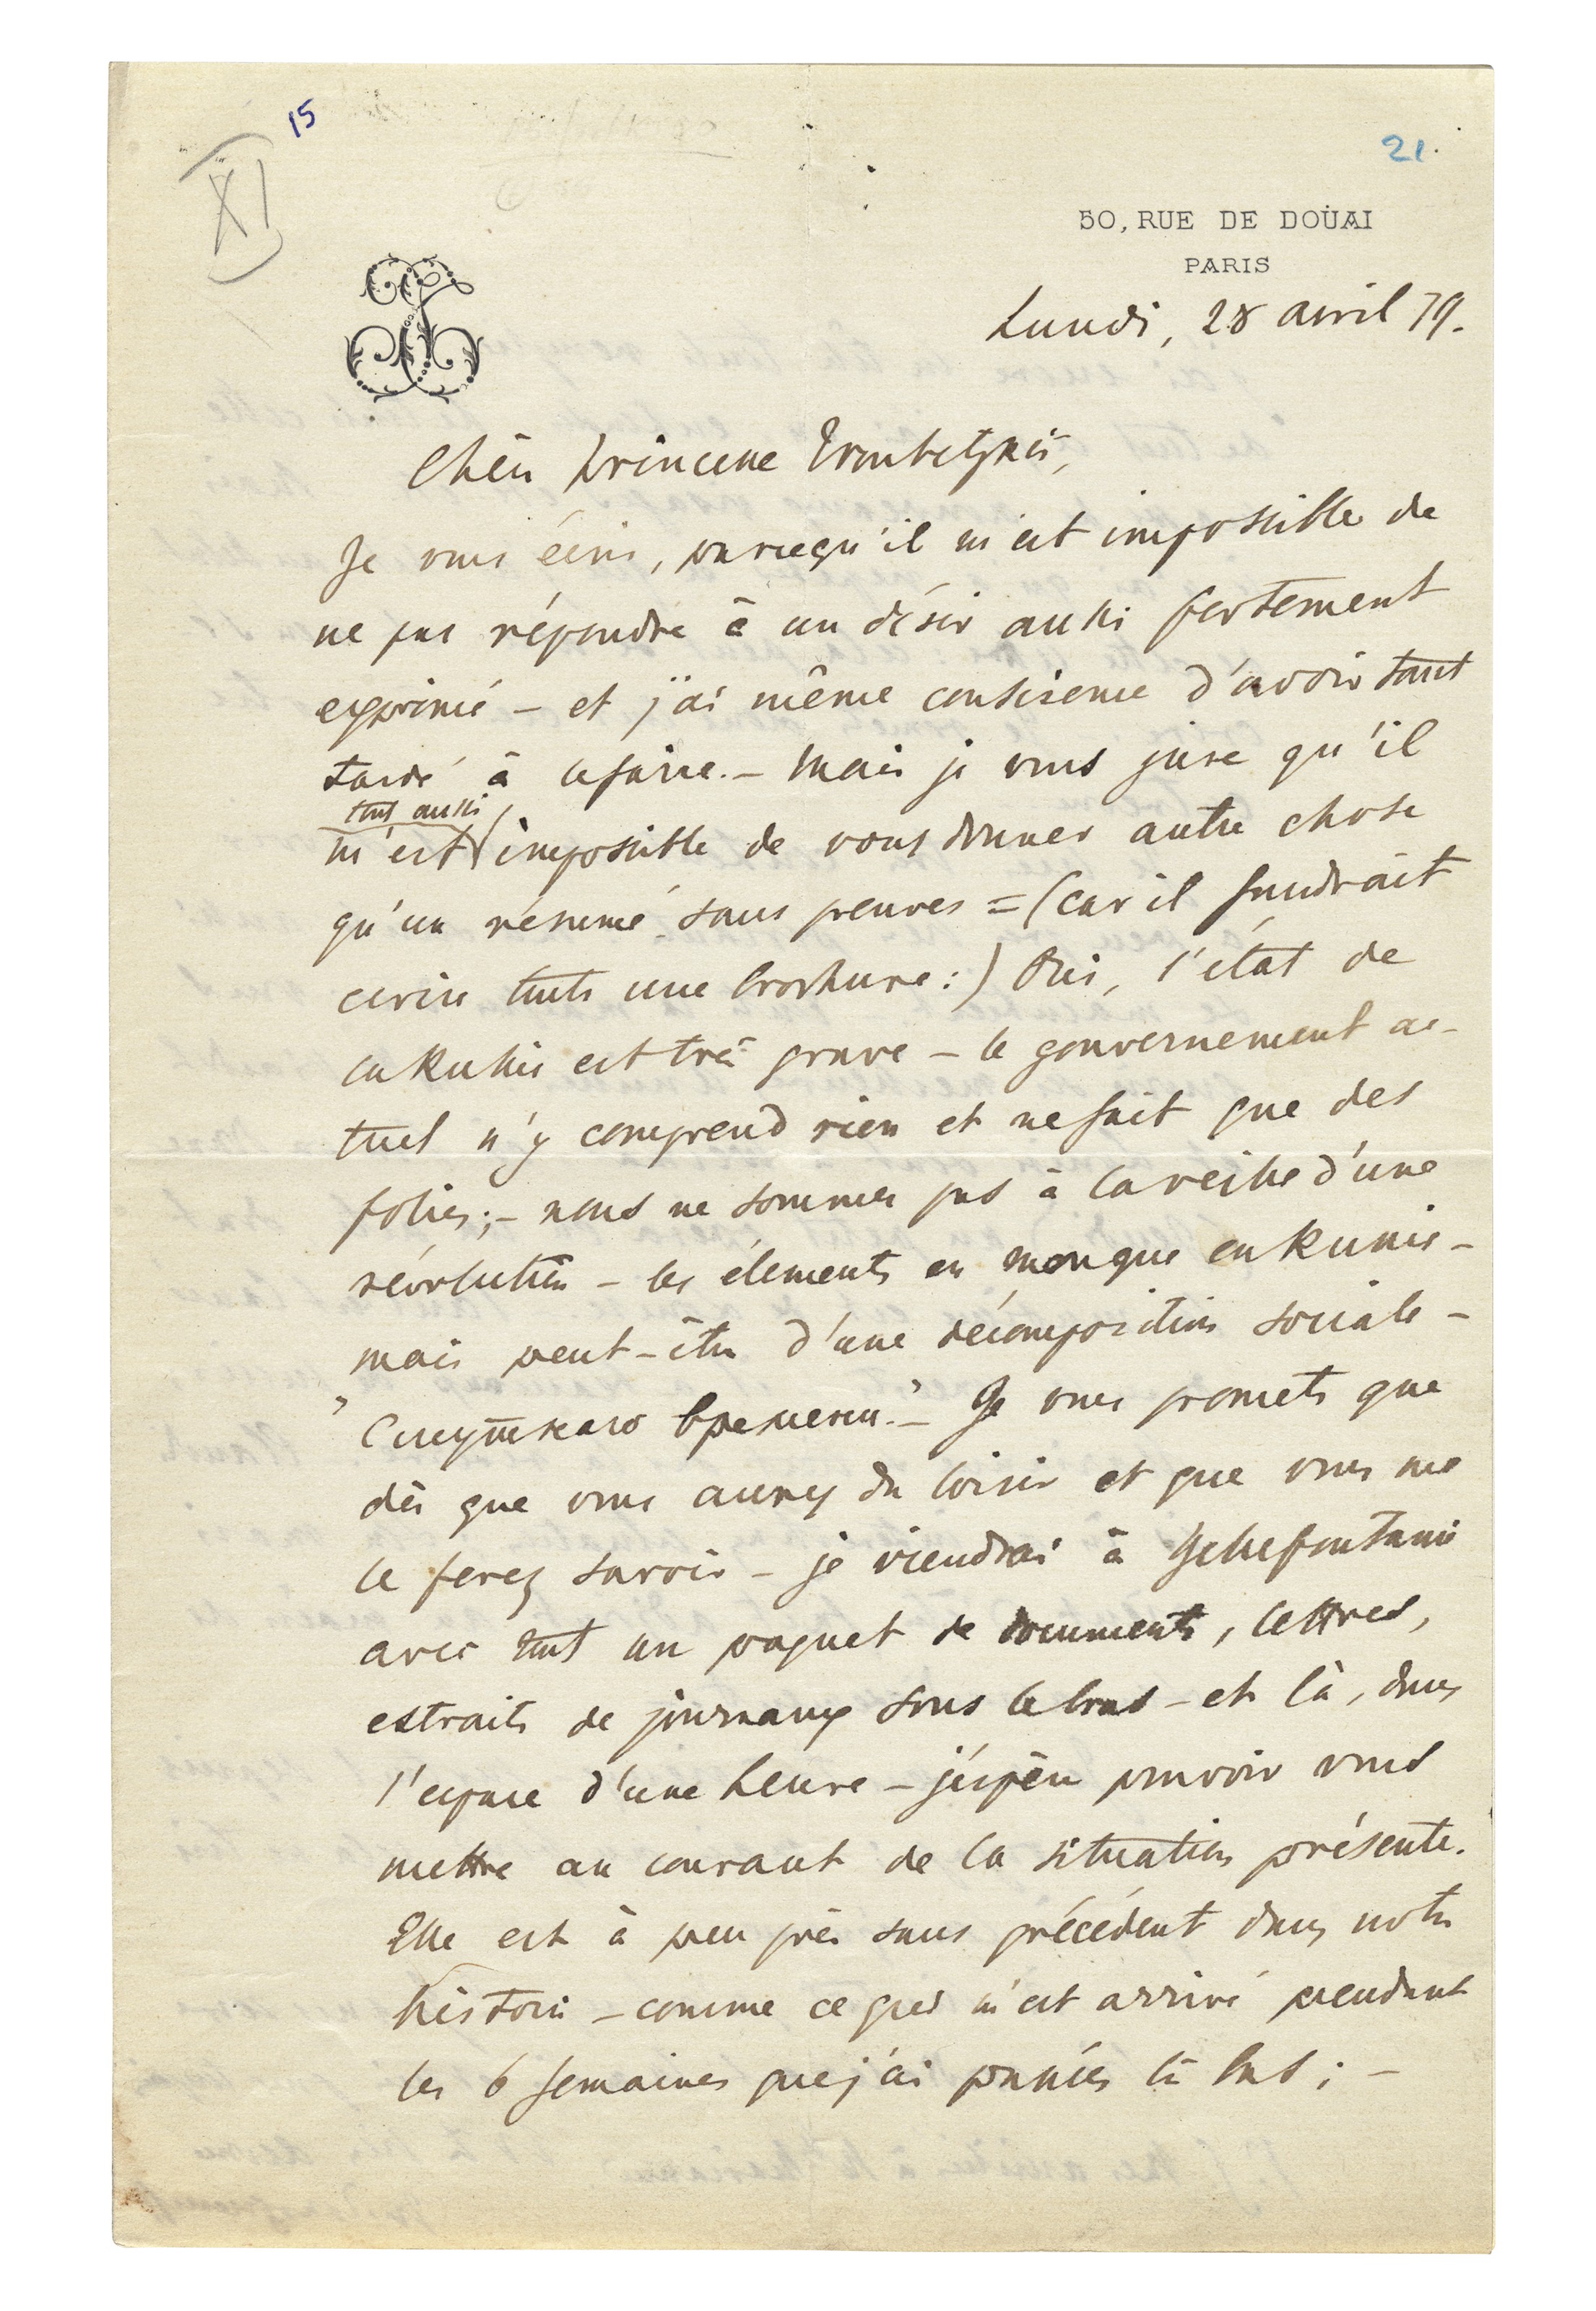 15
XI
21.
50, RUE DE DOUAI
PARIS
Lundi, 28 avril 79.
Chère princesse Troubetzkoï,
Je vous écris, parcequ'il m'est impossible de
ne pas répondre à un désir aussi fortement
exprimé – et j'ai même conscience d'avoir tant
tardé à le faire. – Mais je vous jure qu'il
tout aussi
m'est impossible de vous donner autre chose
qu'un résumé sans preuves = (car il faudrait
écrire toute une brochure:) Oui, l'état de
la Russie est très grave – le gouvernement ac-
tuel n'y comprend rien et ne fait que des
folies; – nous ne sommes pas à la veille d'une
révolution – les éléments en manque en Russie –
mais peut-être d'une décomposition sociale –
"Смутнаго времени." – Je vous promets que
dès que vous aurez du loisir et que vous me
le ferez savoir – je viendrai à Bellefontaine
avec tout un paquet de documents, lettres,
extraits de journaux sous le bras – et là, dans
l'espace d'une heure – j'éspère pouvoir vous
mettre au courant de la situation présente.
Elle est à peu près sans précédent dans notre
histoire – comme ce qui m'est arrivé pendant
les 6 semaines que j'ai passées là bas; –